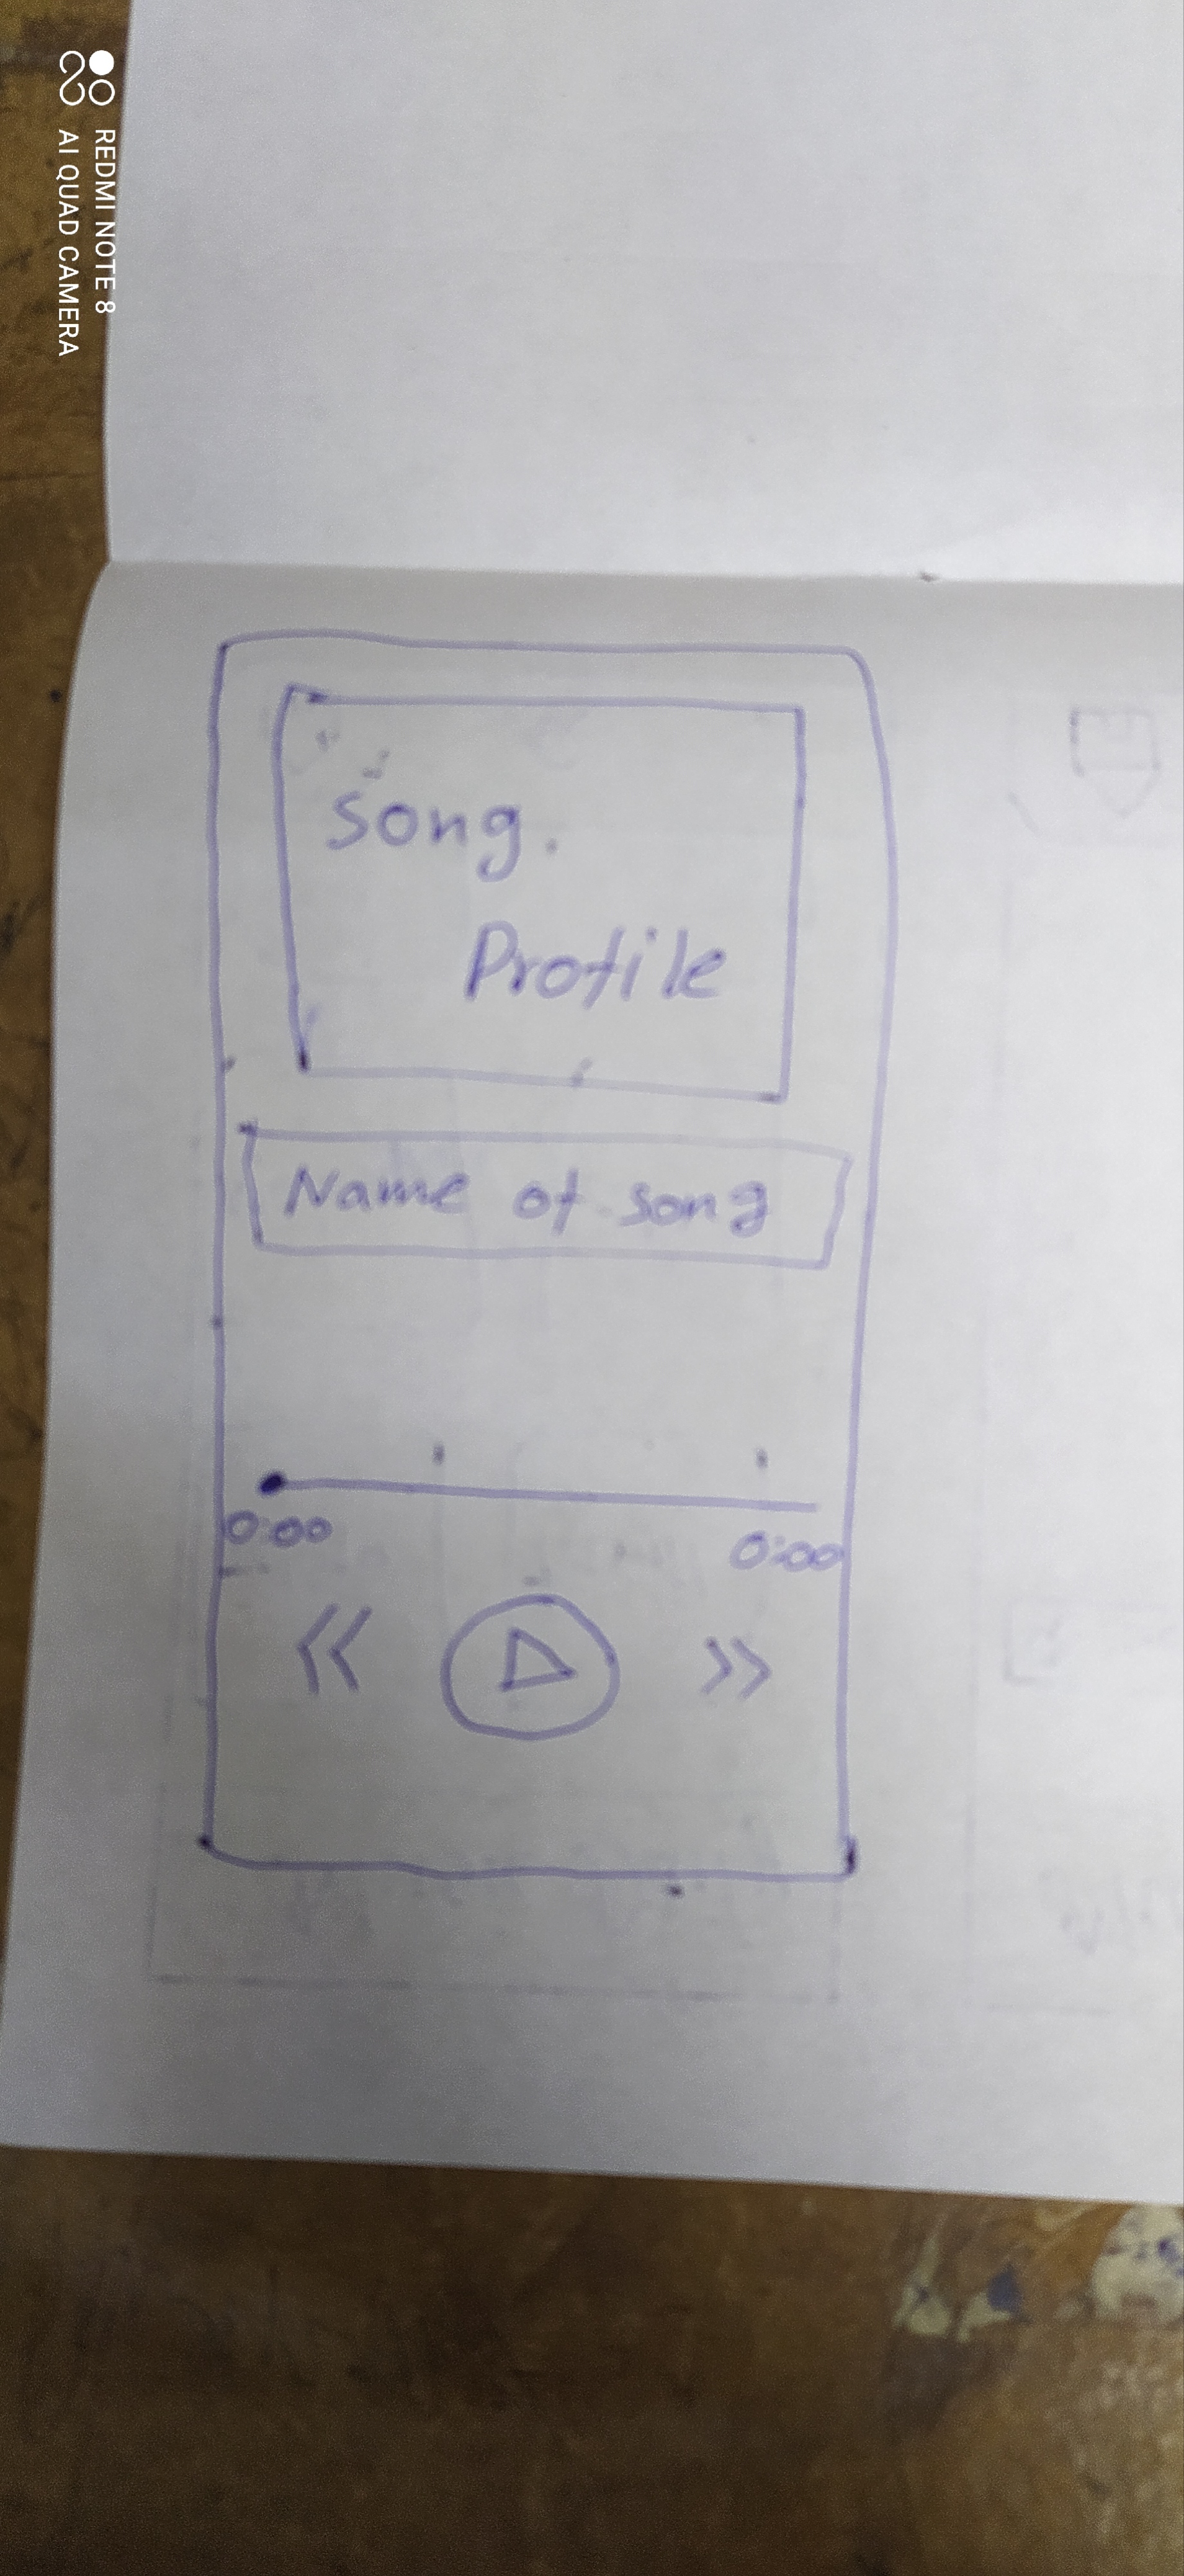 REDMI NOTE 8
AI QUAD CAMERA
song.
Profile
Name of song
0:00
0:00